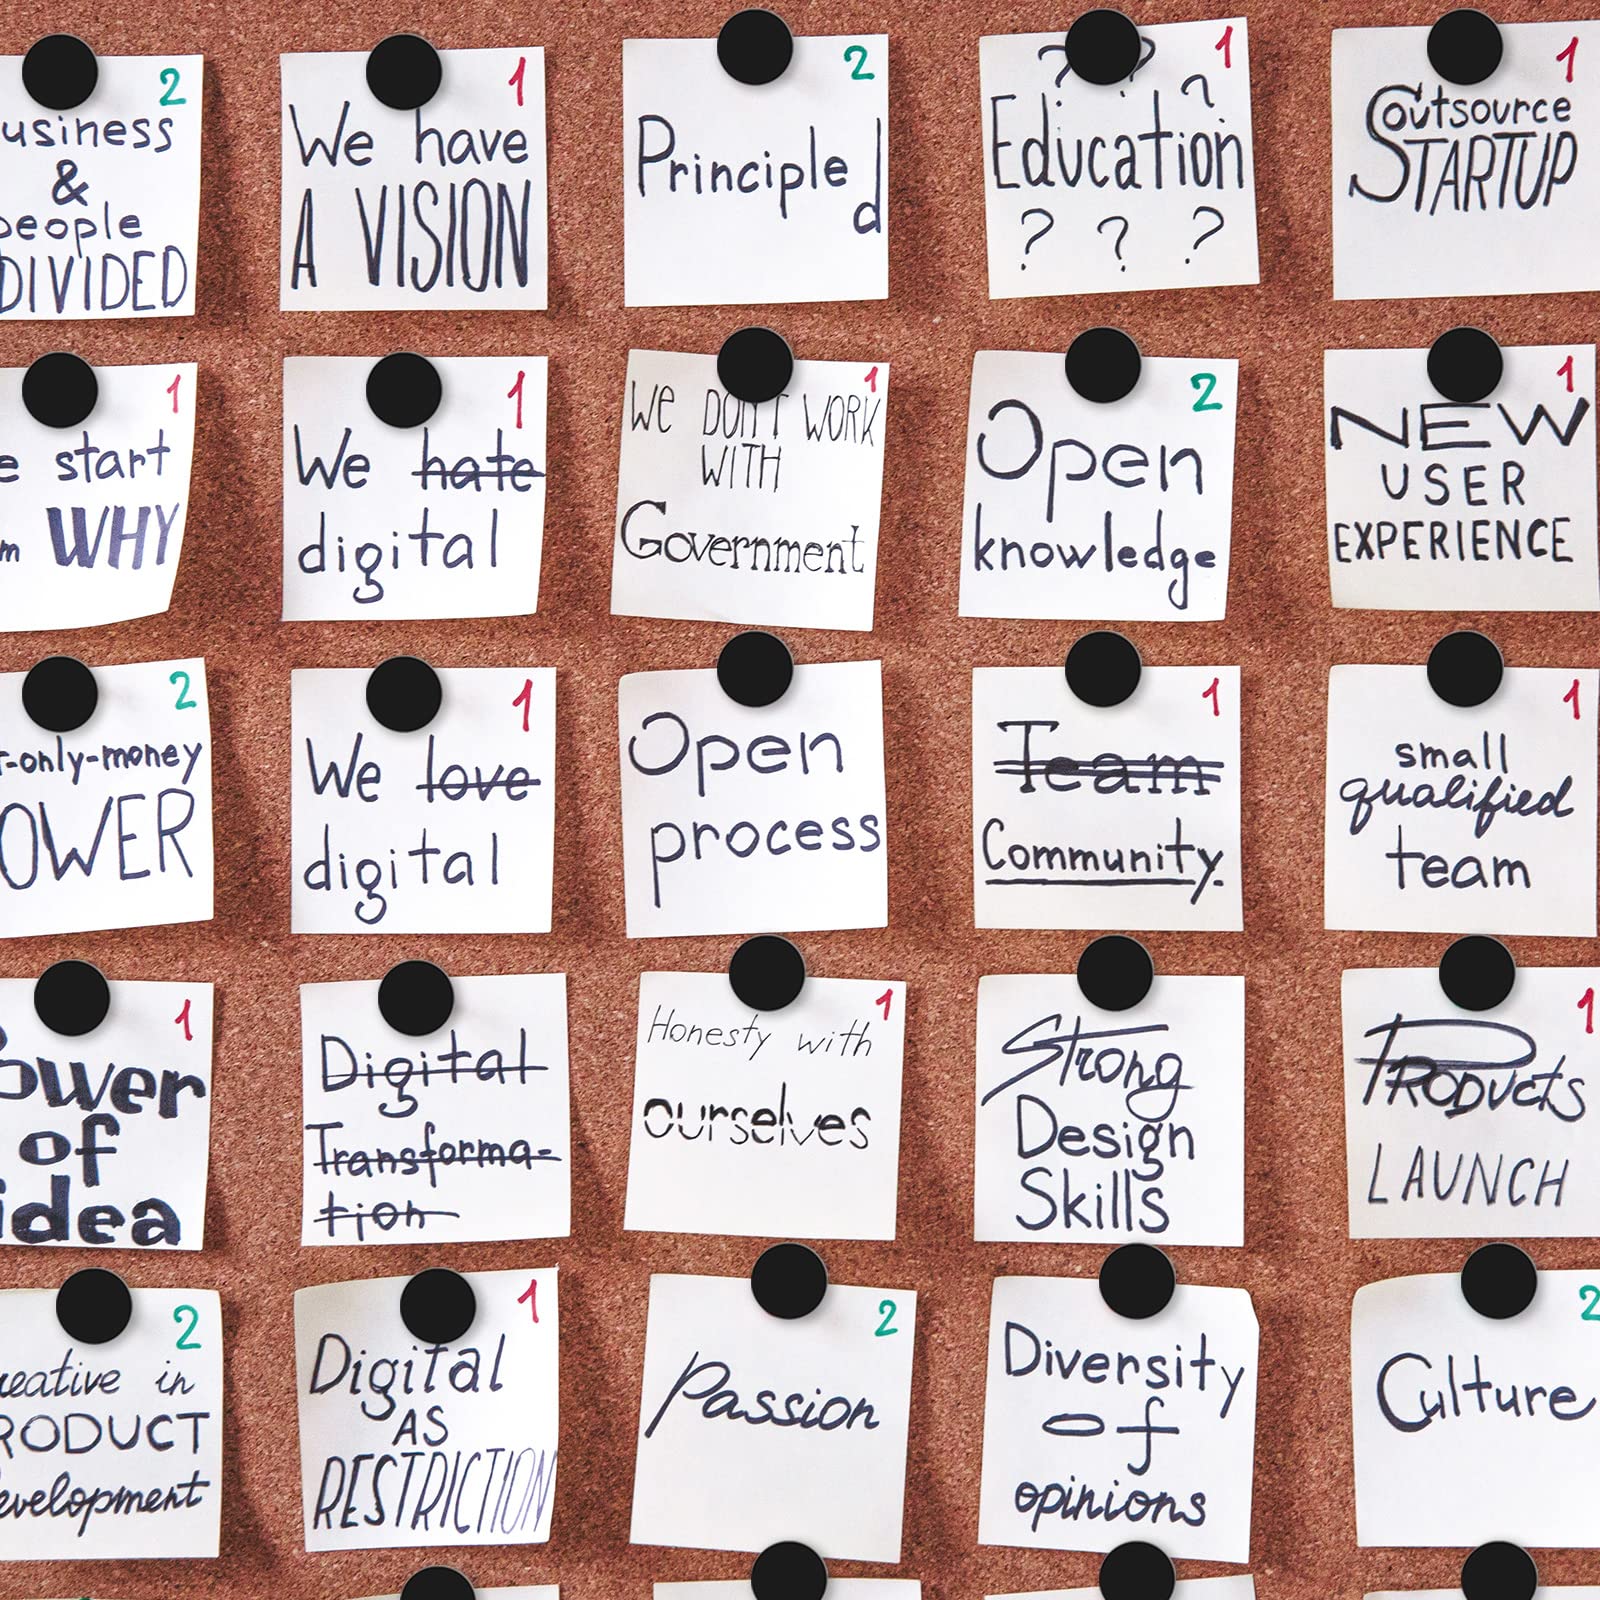 2
usiness
&
people
DIVIDED
1
We have
A VISION
2
Principled
1
? ? ?
Education
? ? ?
1
Outsource
STARTUP
1
e start
m WHY
1
We hate
digital
1
WE DON'T WORK
WITH
Government
2
Open
knowledge
1
NEW
USER
EXPERIENCE
2
-only-money
OWER
1
We love
digital
Open
process
1
Team
Community.
1
small
qualified
team
1
Power
of
idea
Digital
Transforma-
tion
1
Honesty with
ourselves
Strong
Design
Skills
1
PRODUCTS
LAUNCH
2
reative in
RODUCT
evelopment
1
Digital
AS
RESTRICTION
2
Passion
Diversity
of
opinions
2
Culture